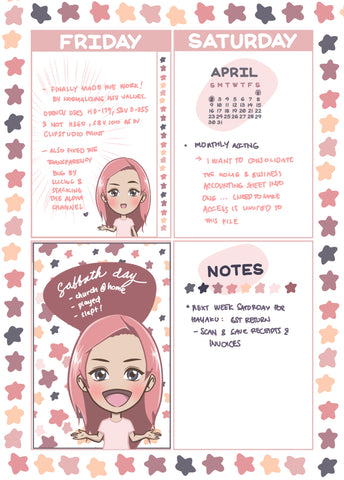 FRIDAY
- FINALLY MADE HUE WORK!
BY NORMALIZING HSV VALUES.
OPENCV USES H 0-179, SAV 0-255
& NOT H360, S&V 100 AS IN
CLIPSTUDIO PAINT
- ALSO FIXED THE
TRANSPARENCY
BUG BY
USING &
STACKING
THE ALPHA
CHANNEL
SATURDAY
APRIL
S M T W T F S
1
2 3 4 5 6 7 8
9 10 11 12 13 14 15
16 17 18 19 20 21 22
23 24 25 26 27 28 29
30
• MONTHLY ACCTNG
→ I WANT TO CONSOLIDATE
THE HOME & BUSINESS
ACCOUNTING SHEET INTO
ONE ... USED TO MAKE
ACCESS IS LIMITED TO
THIS FILE
Sabbath day
- church @ home
- played
- slept!
NOTES
* NEXT WEEK SATURDAY FOR
HAYAKU: GST RETURN
- SCAN & SAVE RECEIPTS &
INVOICES